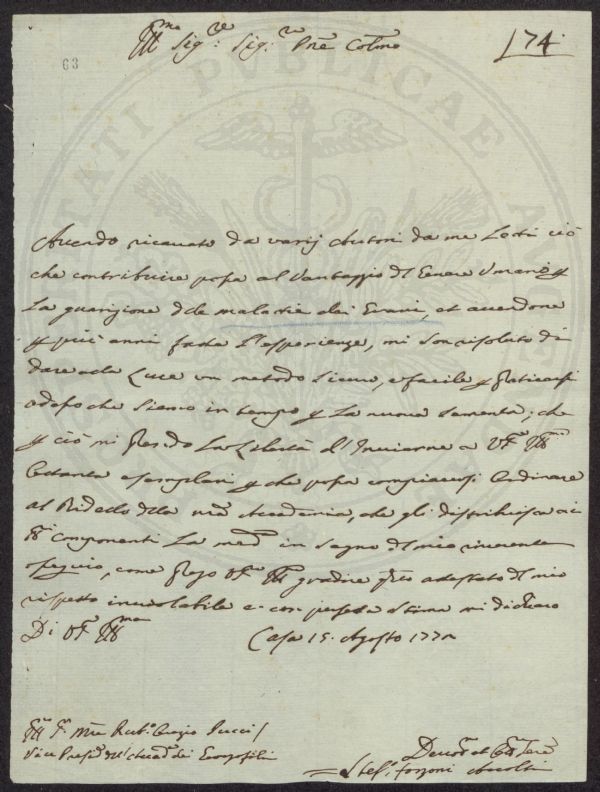 Ill.mo Sig.re Sig.re Pne Colmo
74
63
Avendo ricavato da varij Autori da me Letti ciò
che contribuire possa al Vantaggio del Genere Umano p
La guarigione delle malattie dei Grani, et avendone
p più anni fatta L'esperienza, mi son risoluto di
dare alla Luce un metodo sicuro, e facile p praticarsi
adesso che siamo in tempo p La nuova sementa; che
p ciò mi prendo La Libertà d'Inviarne a VS Ill
esemplari p che possa compiacersi Ordinare
al Bidello della Accademia, che gli distribuisca ai
componenti La med in segno del mio riverente
ossequio, come prego VS Ill gradire questo attestato del mio
rispetto inviolabile e con perfetta stima mi dichiaro
Di VS Ill.ma
Casa 15. Agosto 177
Ill Rub.o Orazio Pucci
Vice Presid dell'Accad dei Georgofili
Stef. Forzoni Accolti